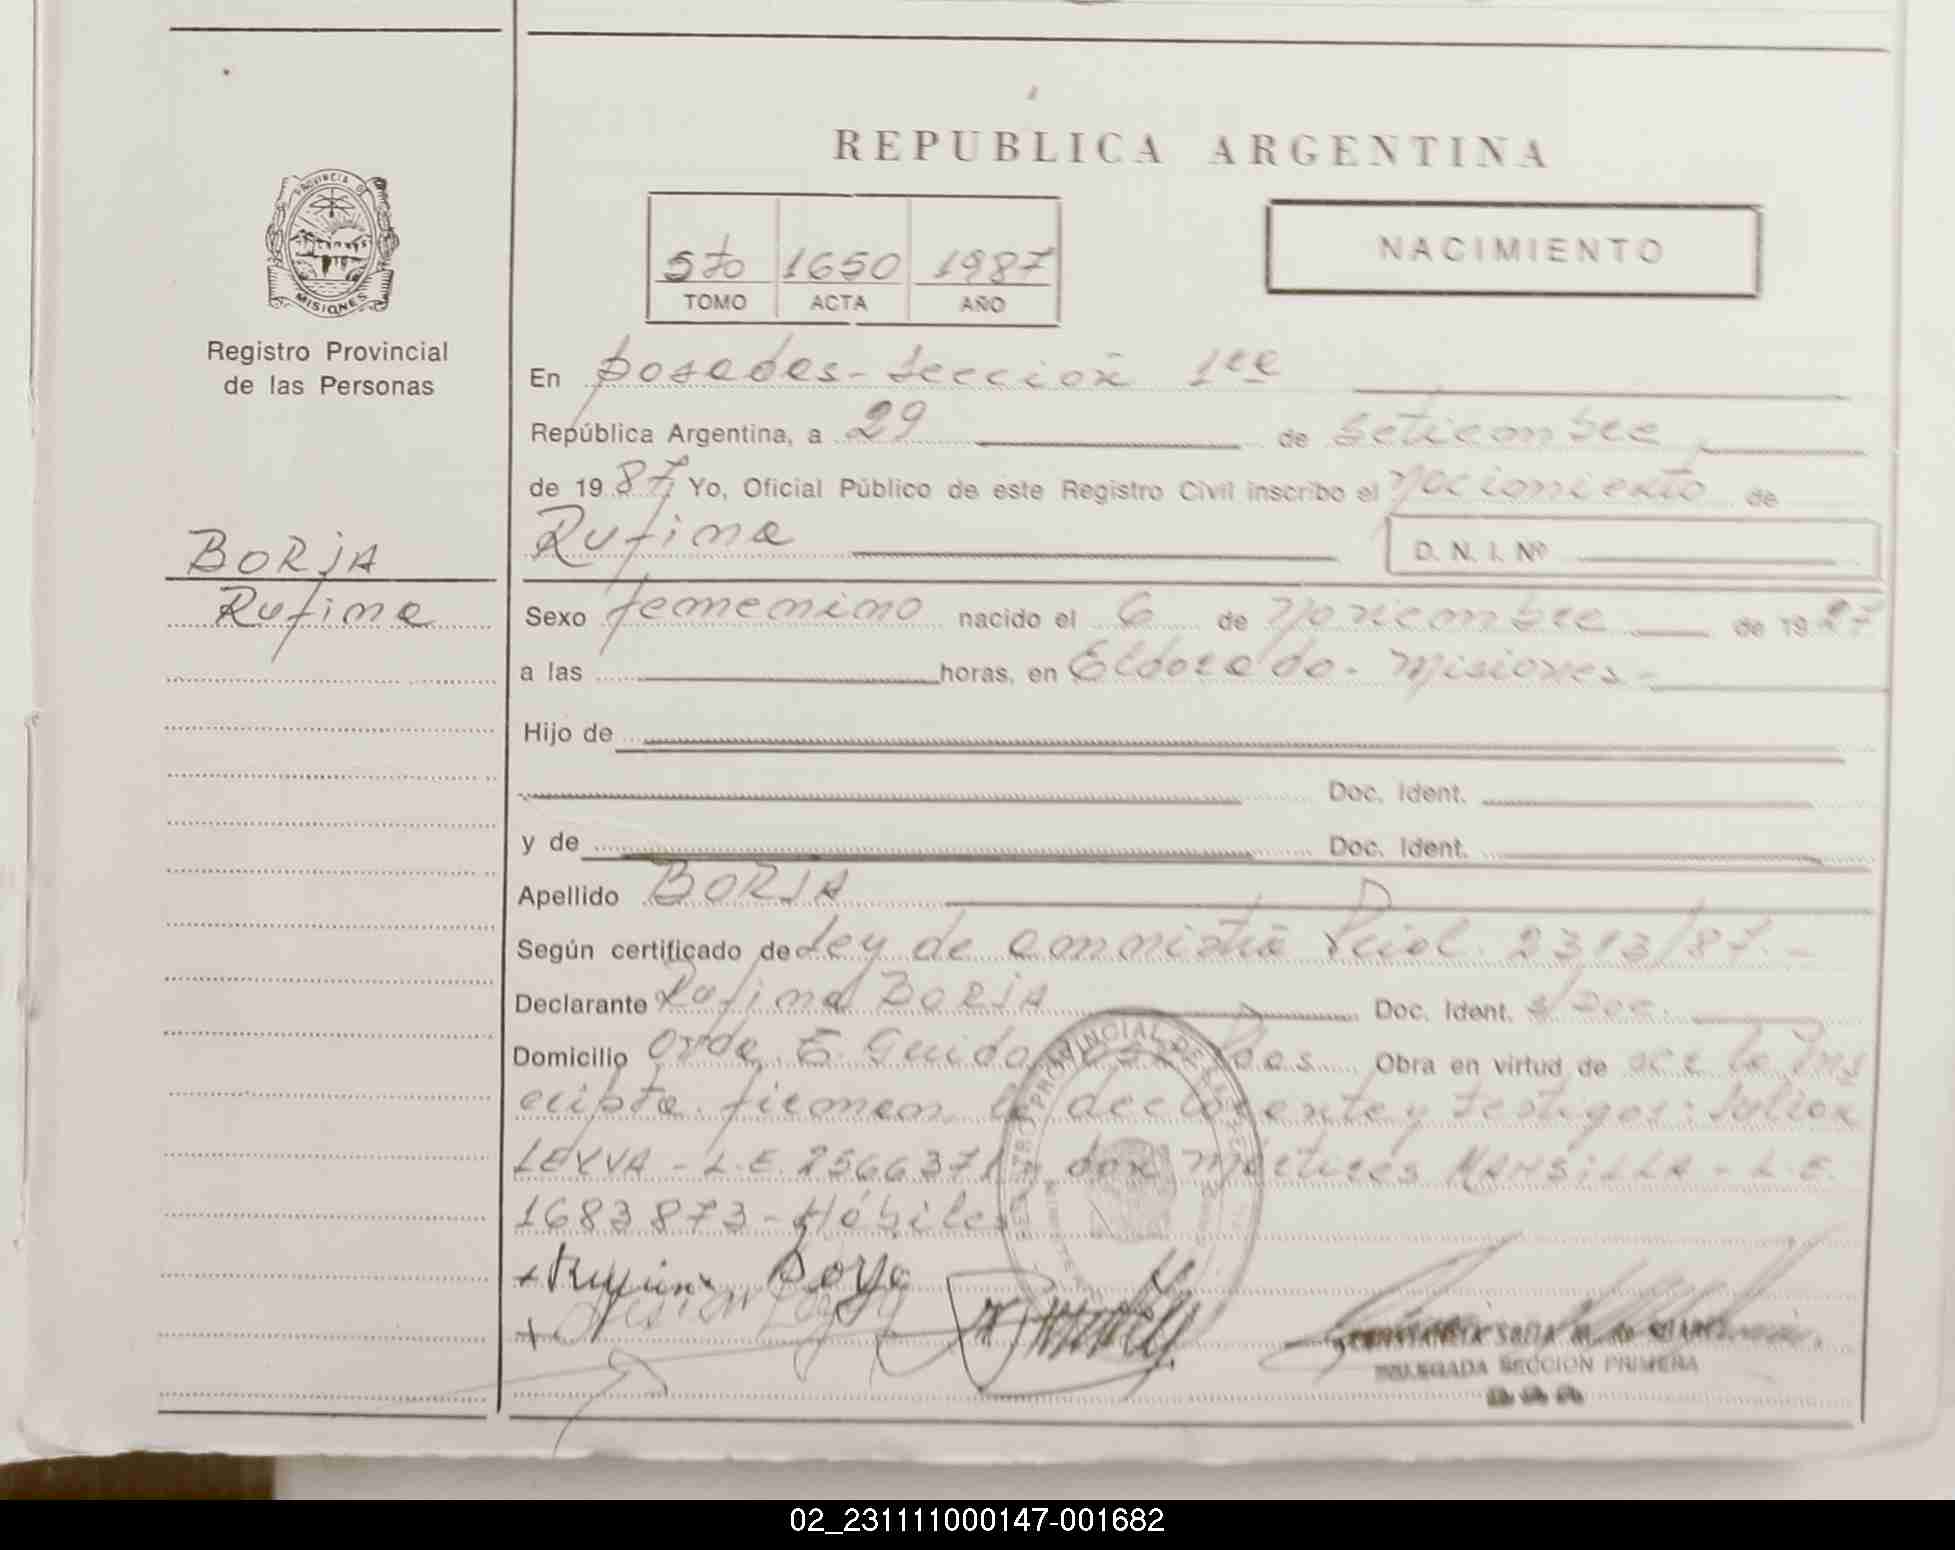 REPUBLICA ARGENTINA
PROVINCIA DE
MISIONES
Registro Provincial
de las Personas
BORJA
Rufina
5to 1650 1987
TOMO ACTA AÑO
NACIMIENTO
En Posadas - Sección 1ra
República Argentina, a 29 de Setiembre
de 1987 Yo, Oficial Público de este Registro Civil inscribo el Nacimiento de
Rufina D. N. I. Nº
Sexo femenino nacido el 6 de Noviembre de 1927
a las horas, en Eldorado - Misiones -
Hijo de
Doc. Ident.
y de Doc. Ident.
Apellido BORJA
Según certificado de Ley de amnistía Pcial. 2313/87. -
Declarante Rufina BORJA Doc. Ident. s/Doc.
Domicilio Avda. E. Guido Pdas Obra en virtud de ser la Ins
cripta. firman la declarante y testigos: Julian
LEYVA - L.E. 2566371 y don Mártires MANSILLA - L.E.
1683873 - Hábiles
CONSTANCIA SOFIA M. de SUAREZ
DELEGADA SECCION PRIMERA
02_231111000147-001682